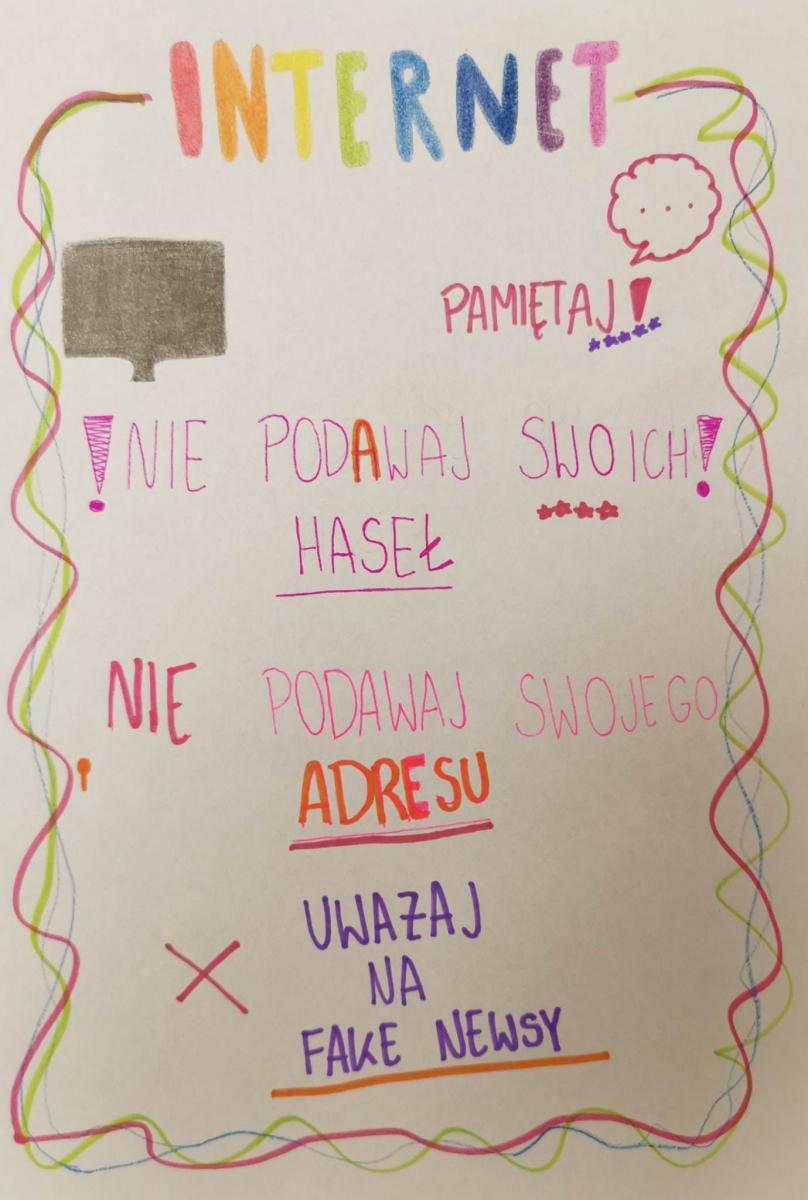 INTERNET
...
PAMIĘTAJ!
! NIE PODAWAJ SWOICH!
HASEŁ
NIE PODAWAJ SWOJEGO
ADRESU
UWAŻAJ
NA
FAKE NEWSY